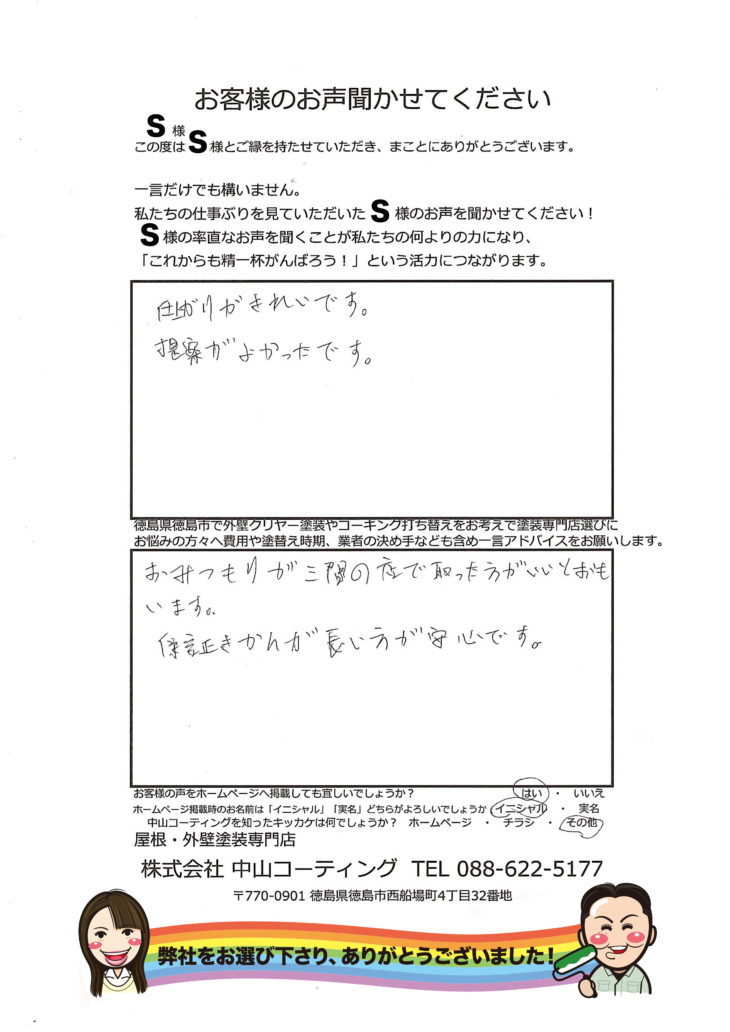 お客様のお声聞かせてください
S 様
この度は S 様とご縁を持たせていただき、まことにありがとうございます。
一言だけでも構いません。
私たちの仕事ぶりを見ていただいた S 様のお声を聞かせてください！
S 様の率直なお声を聞くことが私たちの何よりの力になり、
「これからも精一杯がんばろう！」という活力につながります。
仕上がりがきれいです。
提案がよかったです。
徳島県徳島市で外壁クリヤー塗装やコーキング打ち替えをお考えで塗装専門店選びに
お悩みの方々へ費用や塗替え時期、業者の決め手なども含め一言アドバイスをお願いします。
おみつもりが三間の店で取った方がいいとおも
います。
保証きかんが長い方が安心です。
お客様の声をホームページへ掲載しても宜しいでしょうか？ はい ・ いいえ
ホームページ掲載時のお名前は「イニシャル」「実名」どちらがよろしいでしょうか イニシャル ・ 実名
中山コーティングを知ったキッカケは何でしょうか？ ホームページ ・ チラシ ・ その他
屋根・外壁塗装専門店
株式会社 中山コーティング TEL 088-622-5177
〒770-0901 徳島県徳島市西船場町4丁目32番地
弊社をお選び下さり、ありがとうございました！